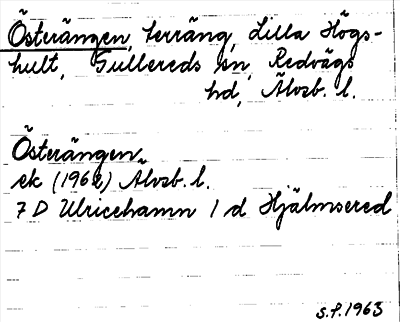 Österängen, terräng, Lilla Högs-
hult, Gullereds sn, Redvägs
hd, Älvsb. l.
Österängen
ek (1962) Älvsb. l.
7 D Ulricehamn 1 d Hjälmsered
S.F. 1963